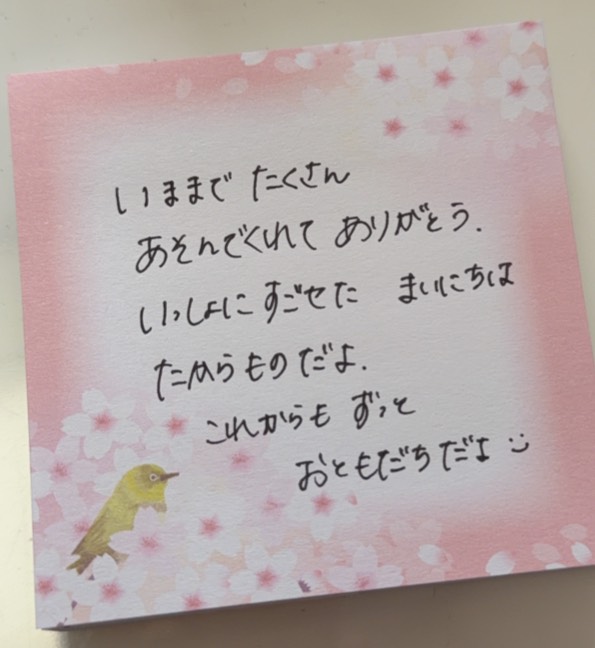 いままで たくさん
あそんでくれて ありがとう.
いっしょに すごせた まいにちは
たからものだよ.
これからも ずっと
おともだちだよ